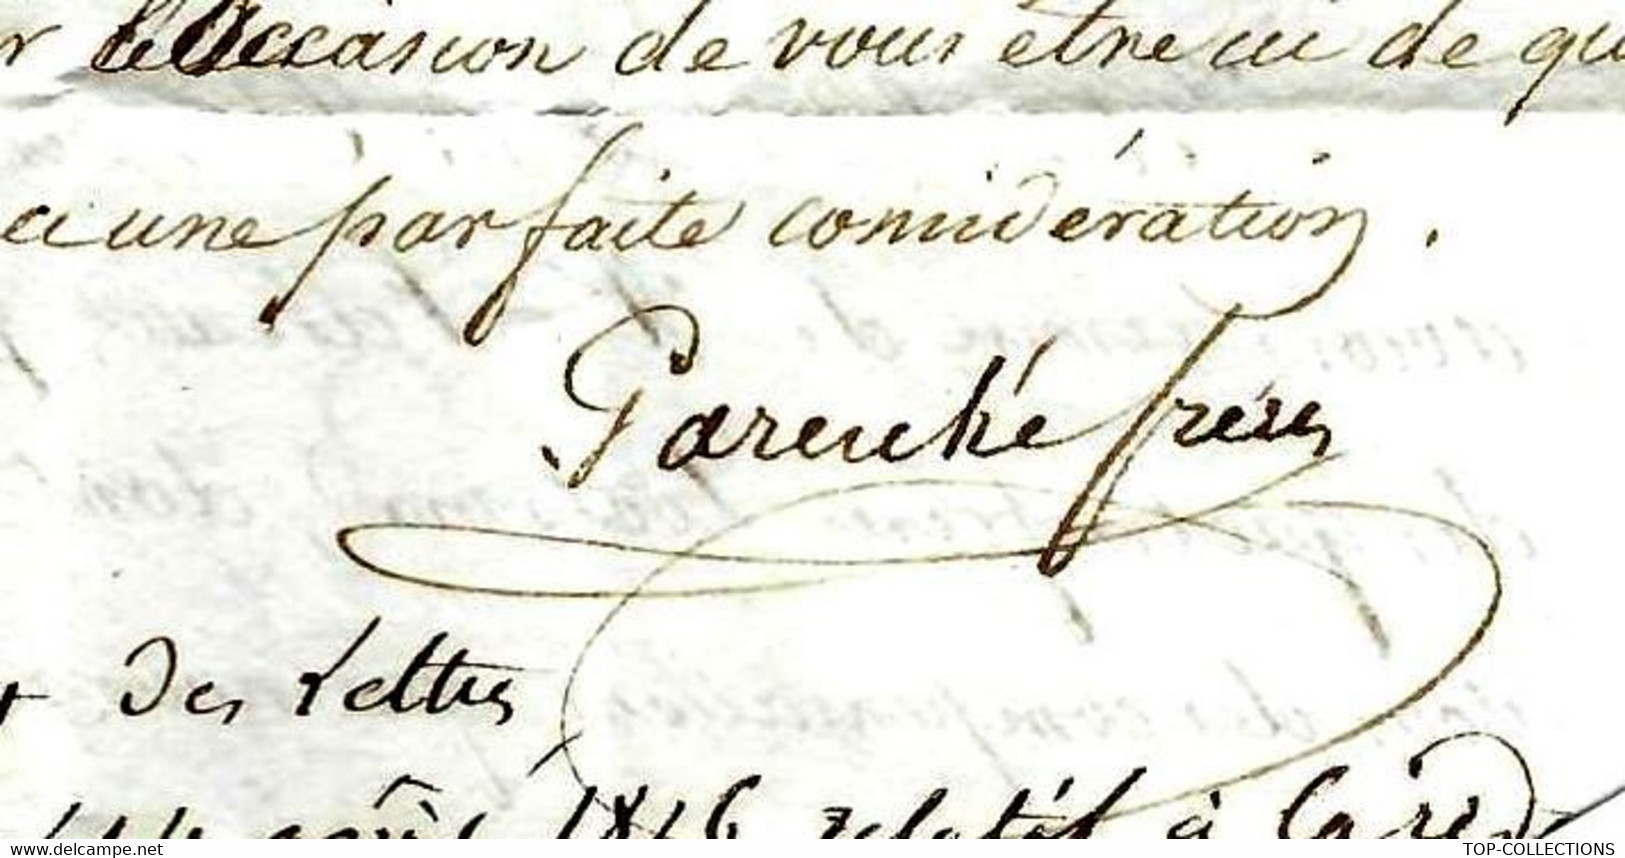 l'Occasion de vous etre ici de qu
a une parfaite considération.
Pareuhé freres
Des Lettres
avril 1816 relatif à
www.delcampe.net TOP-COLLECTIONS